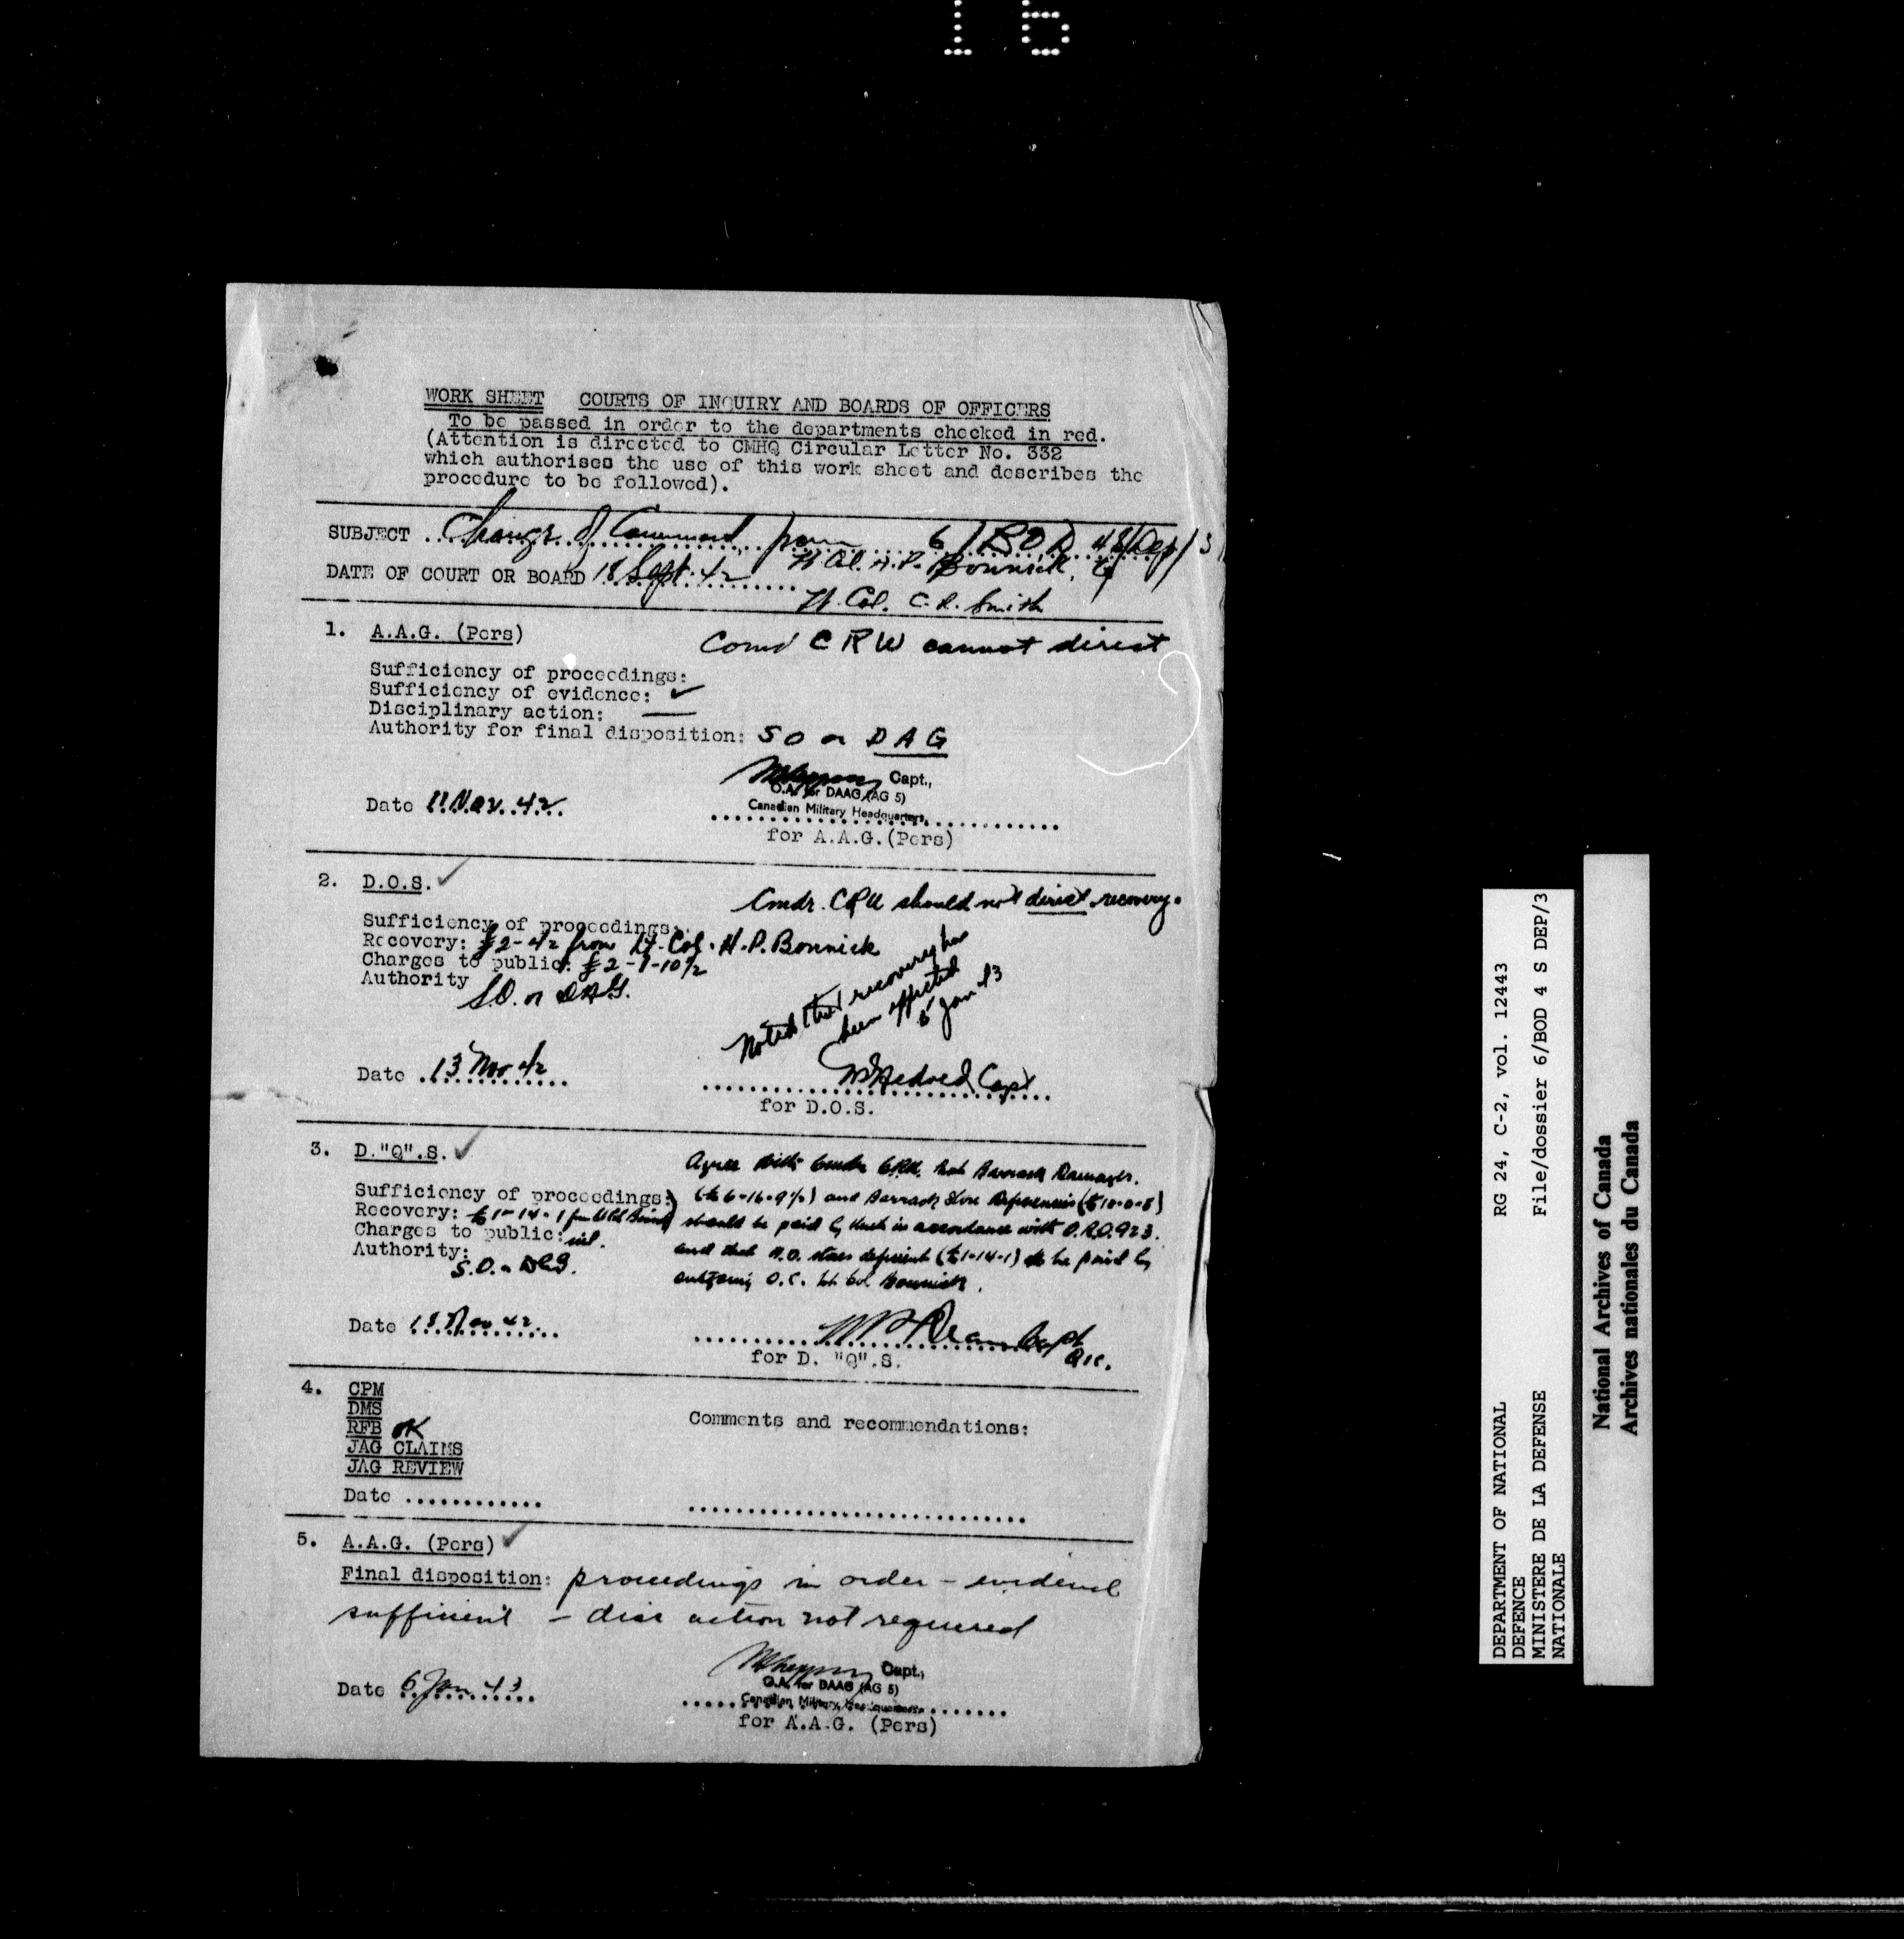 15
WORK SHEET COURTS OF INQUIRY AND BOARDS OF OFFICERS
To be passed in order to the departments checked in red.
(Attention is directed to CMHQ Circular Letter No. 332
which authorises the use of this work sheet and describes the
procedure to be followed).
SUBJECT Change of Command from 6/BOD 4 S/Dep/3
Lt Col. H.P. Bonnick, to
DATE OF COURT OR BOARD 18 Sept. 42
Lt. Col. C.R. Smith
1. A.A.G. (Pers)
Comd CRU cannot direct
Sufficiency of proceedings:
Sufficiency of evidence: ✓
Disciplinary action: —
Authority for final disposition: SO or DAG
Capt.,
O.A. for DAAG (AG 5)
Canadian Military Headquarters
Date 11 Nov. 42
for A.A.G.(Pers)
2. D.O.S. ✓
Cmdr. CRU should not direct recovery.
Sufficiency of proceedings:
Recovery: £2-4/2 from Lt-Col. H.P. Bonnick
Charges to public: £2-7-10½
Authority S.O. or DAG.
Noted that recovery has
been effected
5 Jan 43
Date 13 Nov 42
Capt
for D.O.S.
3. D."Q".S. ✓
Agree with Comdr CRU. that Barrack Damages.
(£6-16-9½) and Barrack Store Deficiencies (£10-0-8)
should be paid by Unit in accordance with O.R.O. 923.
and that N.O. stores deficient (£1-14-1) to be paid by
outgoing O.C. Lt Col. Bonnick.
Sufficiency of proceedings:
Recovery: £1-14-1 from Lt Col
Charges to public: nil.
Authority: S.O. or DAG.
Date 18 Nov 42
Capt
for D. "Q".S.
4. CPM
DMS
RFB OK
JAG CLAIMS
JAG REVIEW
Comments and recommendations:
Date
5. A.A.G. (Pers) ✓
Final disposition: proceedings in order – evidence
sufficient – disc action not required
Capt.,
O.A. for DAAG (AG 5)
Canadian Military Headquarters
Date 6 Jan 43
for A.A.G. (Pers)
DEPARTMENT OF NATIONAL DEFENCE
MINISTERE DE LA DEFENSE NATIONALE
RG 24, C-2, vol. 12443
File/dossier 6/BOD 4 S DEP/3
National Archives of Canada
Archives nationales du Canada